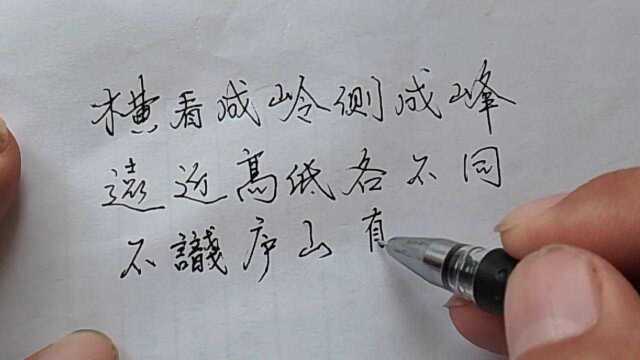 横看成岭侧成峰
遠近高低各不同
不識庐山真